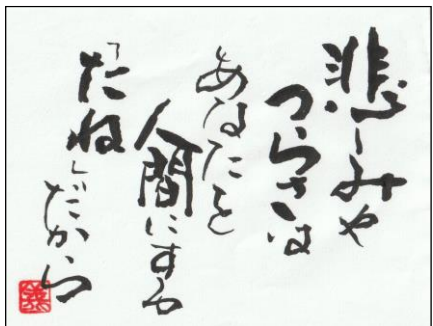 悲しみや
つらさは
あなたを
人間にする
「たね」だから